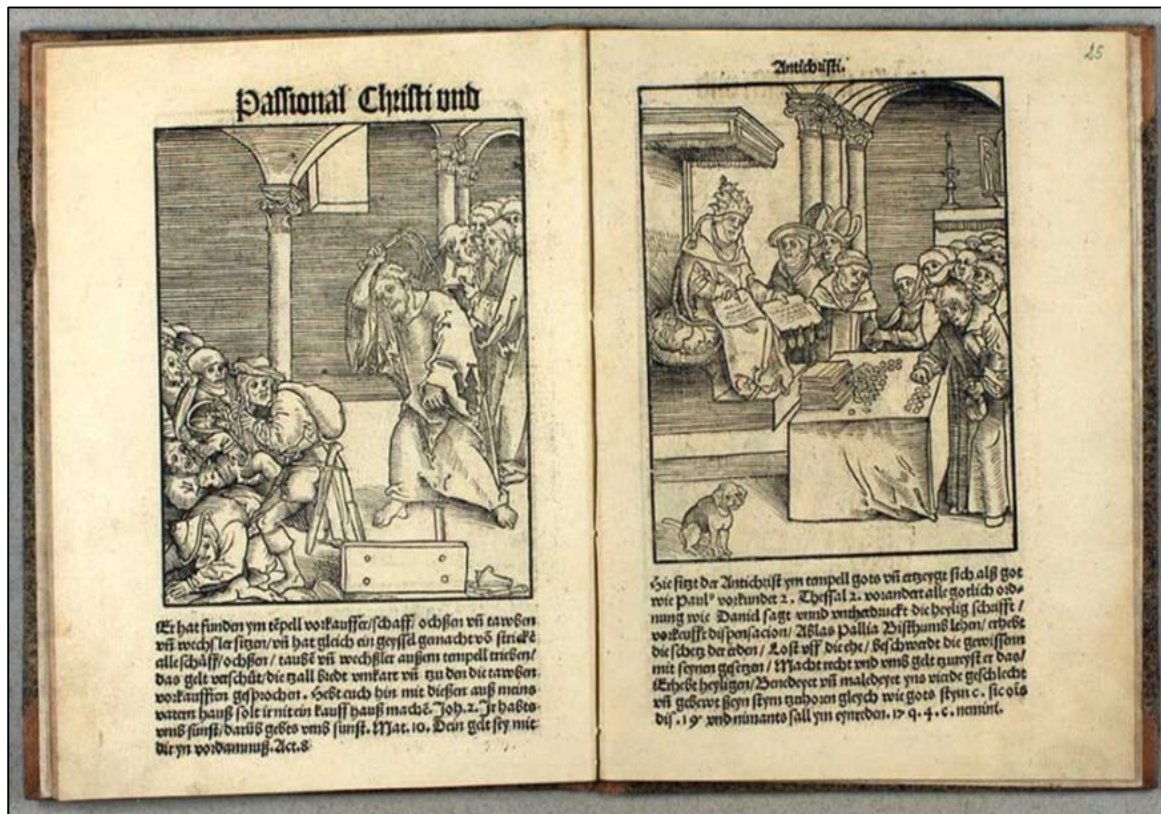 Passional Christi vnd
Er hat funden ym tēpell vorkauffer/schaff/ ochßen vñ tawben
vñ wechsler sitzen/ vñ hat gleich ein geyssel gemacht vō strickē
alle schäff/ochßen/ taubē vñ wechßler außem tempell trieben/
das gelt verschüt/ die tzall bredt vmkart vñ tzu den die tawben
vorkaufften gesprochen. Hebt euch hin mit dießen auß meins
vatern hauß solt ir nit ein kauff hauß machē. Joh. 2. Ir habts
vmb sunst/ darūb gebts vmb sunst. Mat. 10. Dein gelt sey mit
dir yn vordamnuß. Act. 8
Antichristi.
25
Hie sitzt der Antichrist ym tempell gots vñ ertzeygt sich alß got
wie Paulꝰ vorkundet 2. Thessal 2. vorandert alle gotlich ord-
nung wie Daniel sagt vnnd vntherdruckt die heylig schrifft/
vorkeufft dispensacion/ Ablas Pallia Bisthumb lehen/ erhebt
die schetz der erden/ Lost vff die ehe/ beschwerdt die gewissenn
mit seynen gesetzen/ Macht recht vnd vmb gelt tzureyst er das/
Erhebt heyligen/ Benedeyet vñ maledeyet yns vierde geschlecht
vñ gebewt ßeyn stym tzuhoren gleych wie gots stym c. sic oīs
dis. 19ꝰ vnd nimants sall ym eynreden. 17 q. 4. c. nemini.